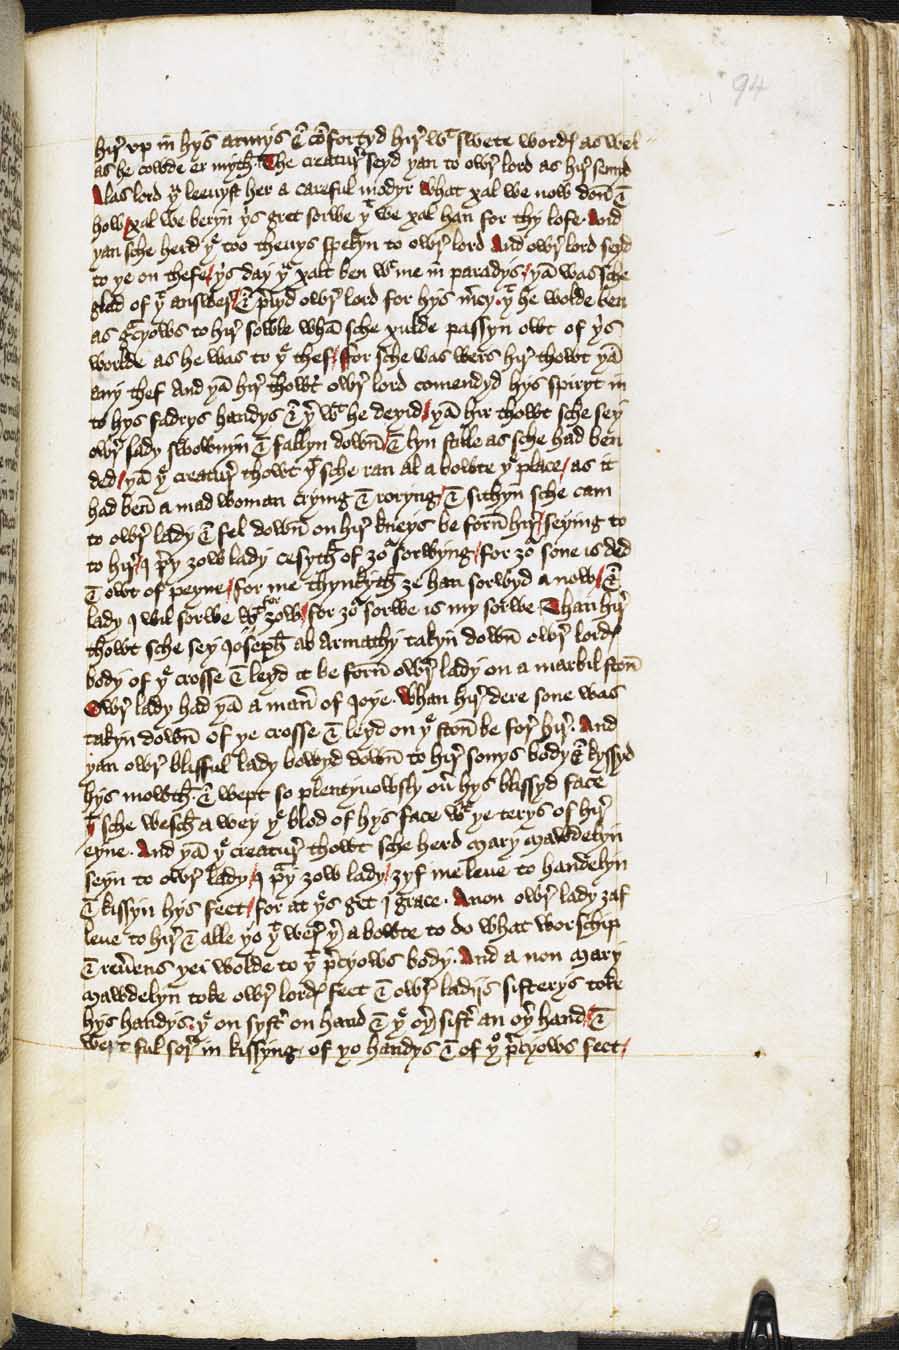 94
hir̛ vp in hys armys & cōfortyd hir̛ wt swete wordꝭ as wel
as he cowde er myth. The creatur̛ seyd yan to owr̛ lord as hir̛ semyd
Alas lord yu leeuyst her a careful modyr what xal we now don̄ &
how xal we beryn ys gret sorwe yt we xal han for thy lofe. And
yan sche herd ye too theuys spekyn to owr̛ lord And owr̛ lord seyd
to ye on thefe / ys day yu xalt ben wt me in paradys / yā was sche
glad of yt answer̛ / & p̄yd owr̛ lord for hys m̄cy. yt he wolde ben
as gcyows to hir̛ sowle whā sche xulde passyn owt of ys
worlde as he was to ye thef / for sche was wers hir̛ thowt yā
any thef And yā hir̛ thowt owr̛ lord comendyd hys spiryt in
to hys fadrys handys & yr̛ wt he deyid / yā hir thowt sche sey
owr̛ lady swownyn & fallyn down̄ & lyn stille as sche had ben
ded / yā ye creatur̛ thowt yt sche ran al a bowte ye place / as it
had ben̄ a mad woman crying & roryng / & sithyn sche cam
to owr̛ lady & fel down̄ on hir̛ kneys be forn̄ hir̛ / seying to
to hir̛ / I p̄y ȝow lady cesyth of ȝor sorwyng / for ȝor sone is ded
& owt of peyne / for me thynkyth ȝe han sorwyd a now / &
lady I wil sorwe for ȝow / for ȝor sorwe is my sorwe Than hir̛
thowt sche sey Joseph ab Armathy takyn down̄ owr̛ lordꝭ
body of ye crosse & leyd it be forn̄ owr̛ lady on a marbil ston̄
Owr̛ lady had yā a maner̛ of Joye. Whan hir̛ dere sone was
takyn down̄ of ye crosse & leyd on ye ston̄ be for̛ hir̛. And
yan owr̛ blissful lady bowyd down̄ to hir̛ sonys body & kyssyd
hys mowth. & wept so plentyuowsly oư hys blissyd face
yt sche wesch a wey ye blod of hys face wt ye terys of hir̛
eyne. And yā ye creatur̛ thowt sche herd Mary Mawdelyn
seyn to owr̛ lady / I p̄y ȝow lady / ȝyf me leue to handelyn
& kissyn hys feet / for at ys get I grace. Anon owr̛ lady ȝaf
leue to hir̛ & alle yo yt wer̛ yr̛ a bowte to do what worschip
& reưens yei wolde to yt p̄cyows body. And a non Mary
Mawdelyn toke owr̛ lordꝭ feet & owr̛ ladijs sisterys toke
hys handys. ye on syst̛ on hand & ye oyr̛ sist̛ an oyr̛ hand / &
wept ful sor̛ in kissyng of yo handys & of yo p̄cyows feet /